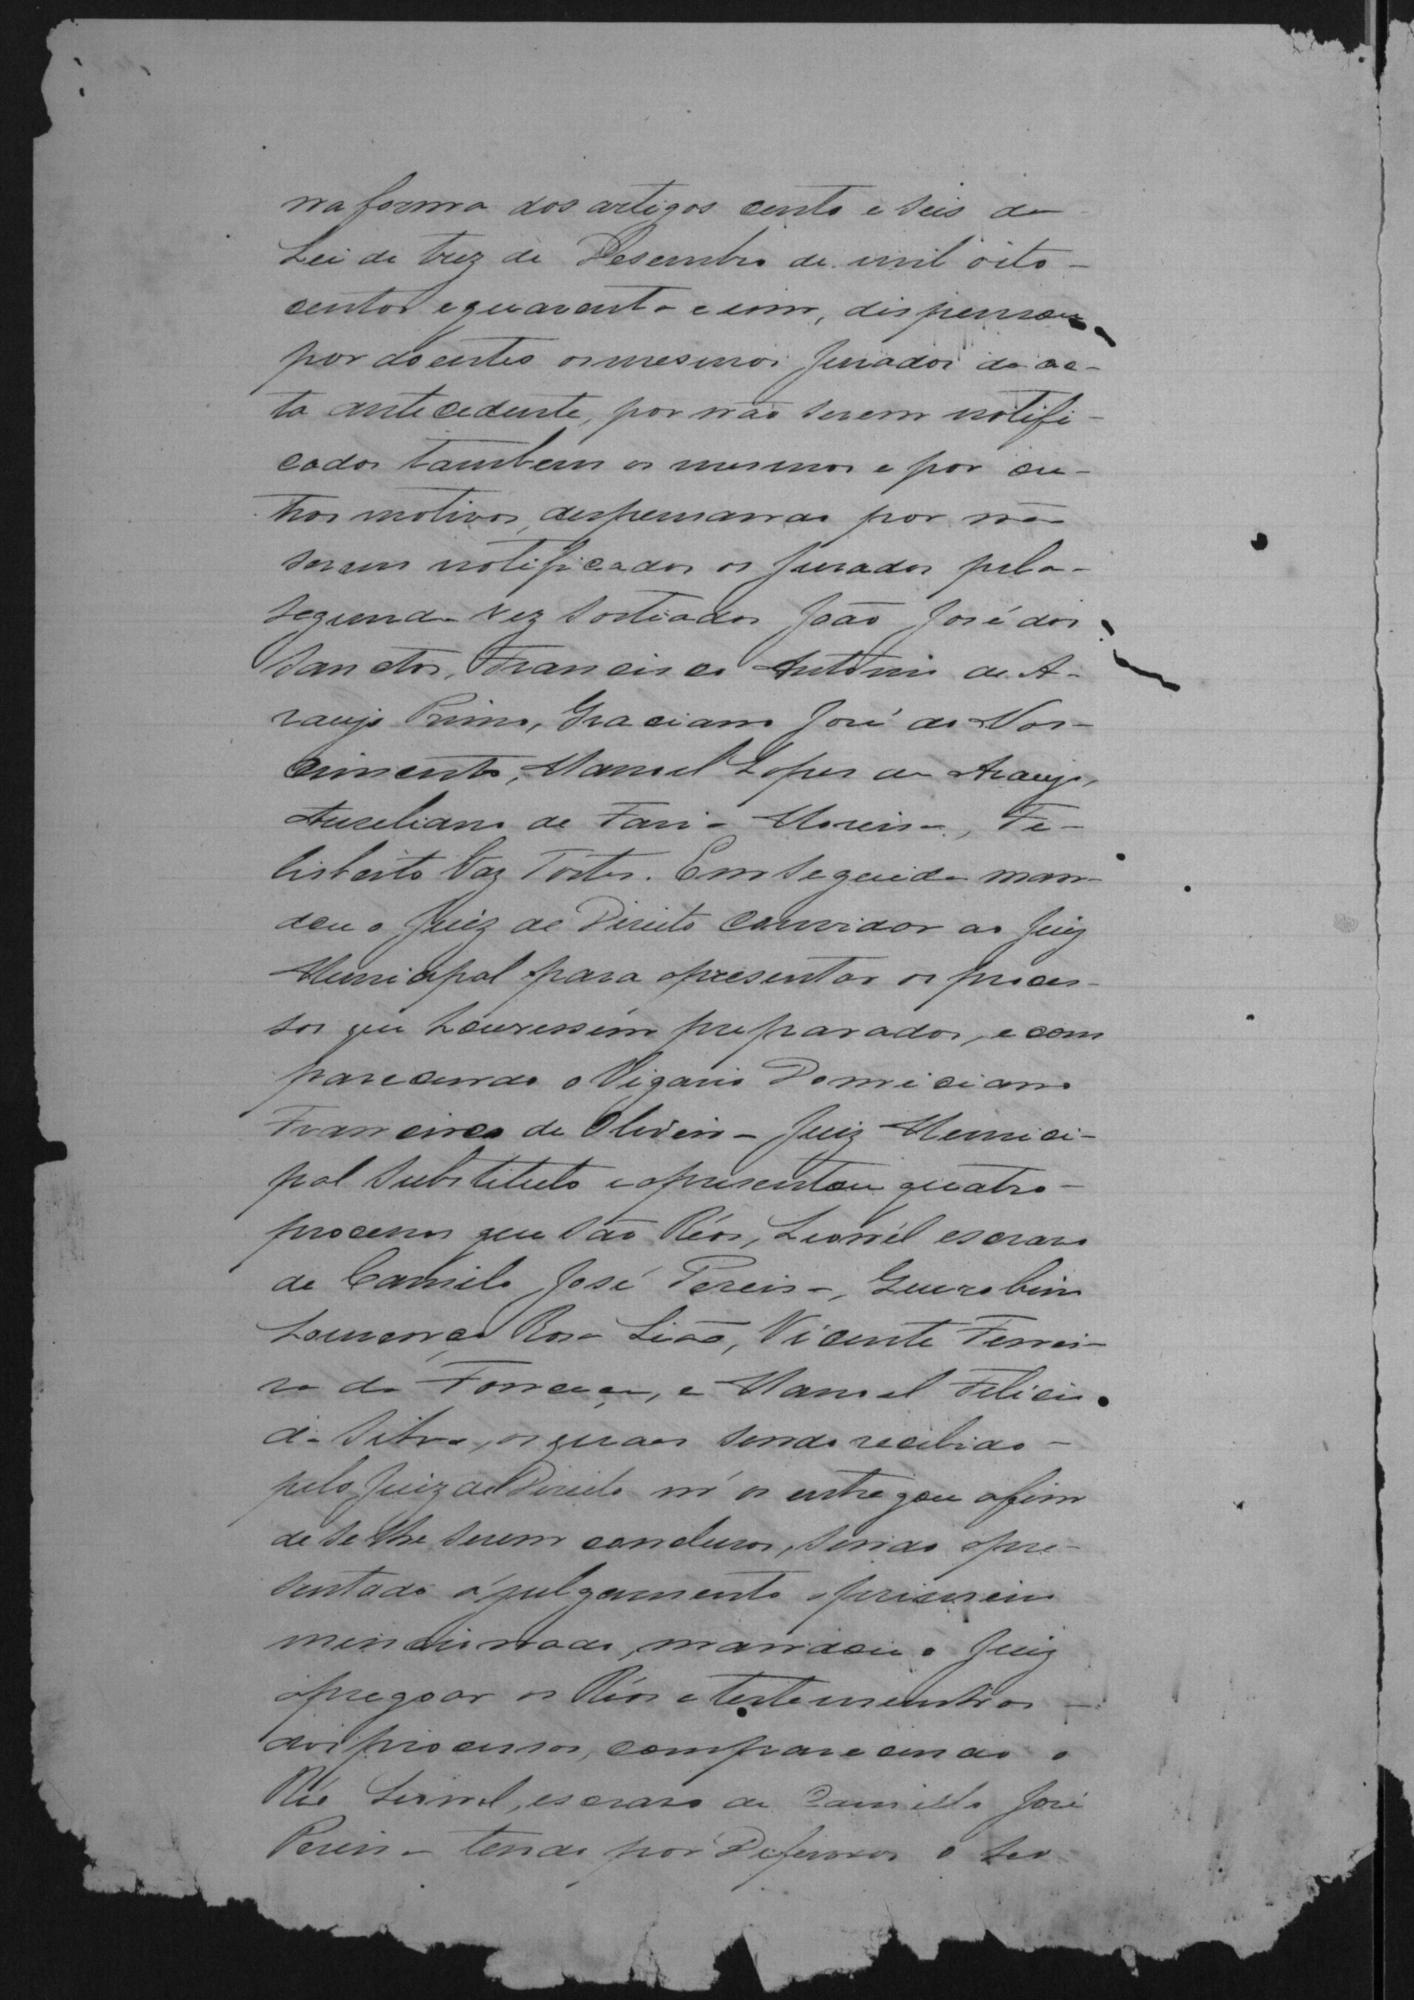 na forma dos artigos cento e seis da
Lei de trez de Desembro de mil oito-
centos e quarenta e um, dispensou
por doentes os mesmos Jurados da ac-
ta antecedente, por não serem notifi-
cados tambem os mesmos e por ou-
tros motivos, despensando por não
serem notificados os Jurados pela-
segunda vez sortiados João José dos
Sanctos, Francisco Antonio de A-
raujo Primo, Graciano José do Nas-
cimento, Manoel Lopes de Araujo,
Aureliano de Faria Moreira, Fe-
lisberto Vaz Tostes. Em seguida man-
dou o Juiz de Direito convidar ao Juiz
Municipal para apresentar os proces-
sos que houvessem preparados, e com
parecendo o Vigario Domiciano
Francisco de Oliveira Juiz Munici-
pal substituto e apresentou quatro-
processos que são Réos, Leonél escravo
de Camilo José Pereira,
Lourenço Rosa Lião, Vicente Ferrei-
ra da Fonceca, e Manoel Felicio
da Silva, os quaes sendo recebido-
pelo Juiz de Direito m'os entregou afim
de se lhe serem conclusos, sendo apre-
sentado á julgamento o primeiro
mencionado, mandou o Juiz
apregoar os Réos e testemunhas
dos processos, comparecendo o
Réo Leonel, escravo de Camillo José
Pereira tendo por Defensor o seu